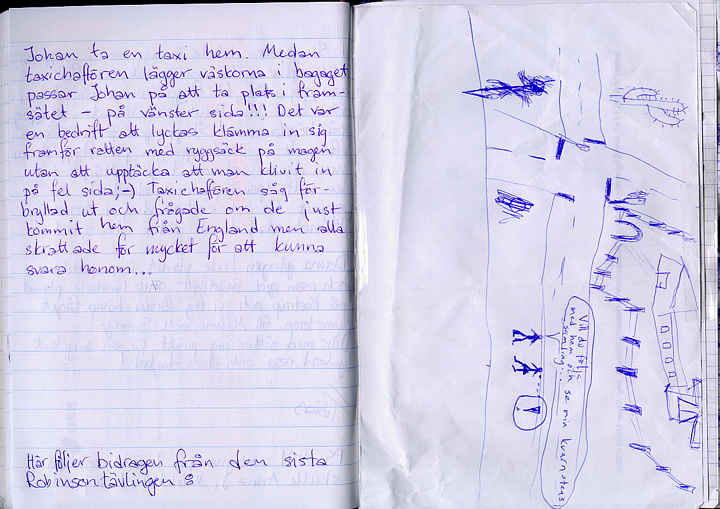 Johan ta en taxi hem. Medan
taxichafören lägger väskorna i bagaget
passar Johan på att ta plats i fram-
sätet – på vänster sida!!! Det var
en bedrift att lyckas klämma in sig
framför ratten med ryggsäck på magen
utan att upptäcka att man klivit in
på fel sida;-) Taxichafören såg för-
bryllad ut och frågade om de just
kommit hem från England men alla
skrattade för mycket för att kunna
svara honom...
Här följer bidragen från den sista
Robinsontävlingen :
Vill du följa
med hem och se min kvarnstens
samling...
!